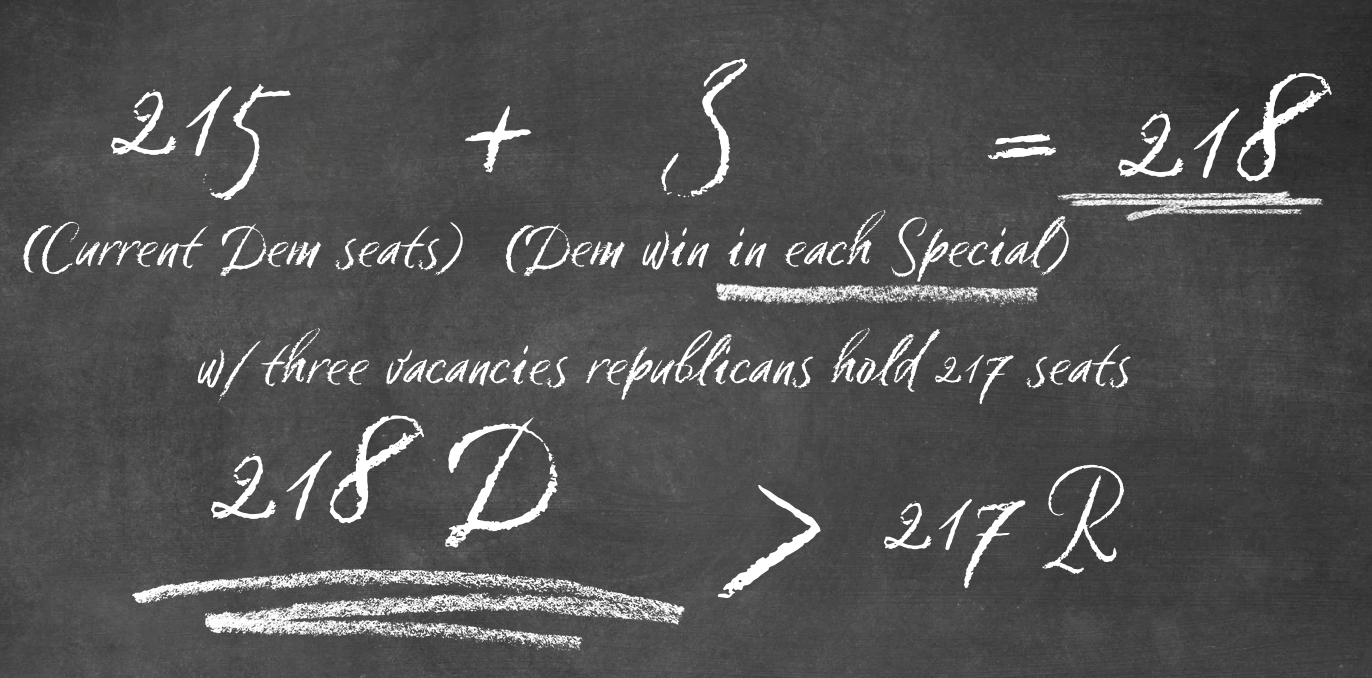 215 + 3 = 218
(Current Dem seats) (Dem win in each Special)
w/ three vacancies republicans hold 217 seats
218 D > 217 R